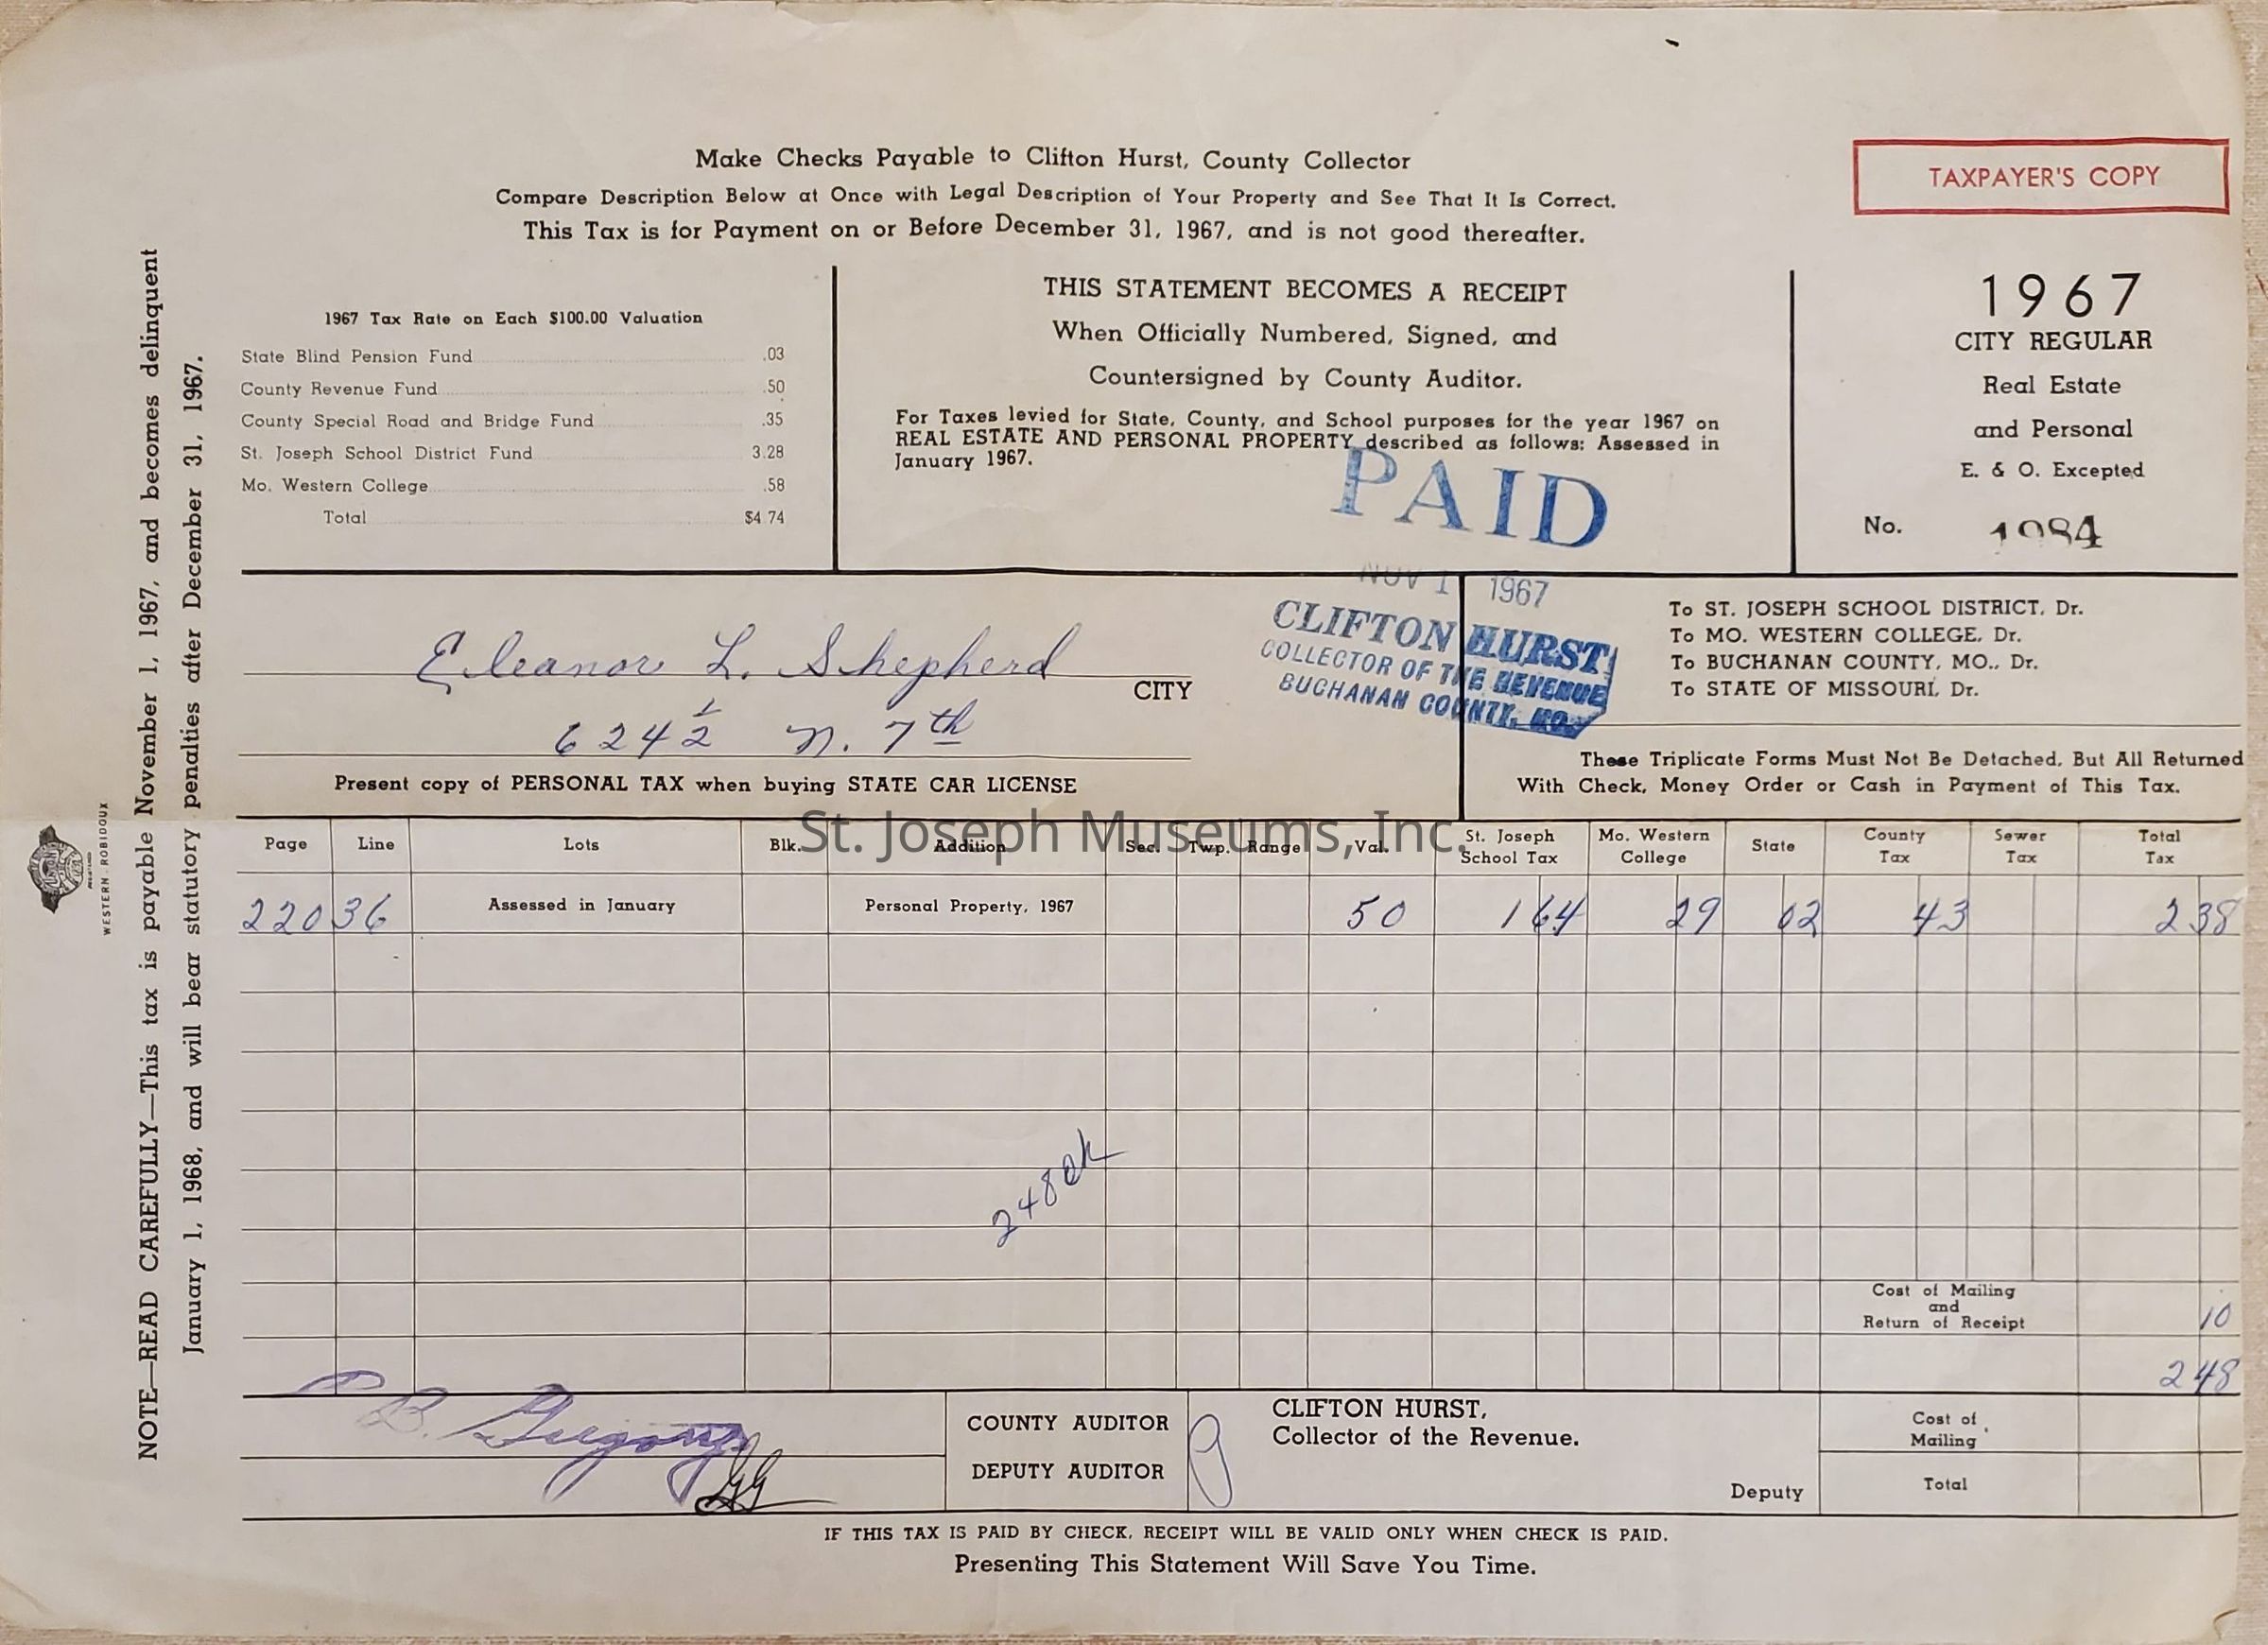 Make Checks Payable to Clifton Hurst, County Collector
Compare Description Below at Once with Legal Description of Your Property and See That It Is Correct.
This Tax is for Payment on or Before December 31, 1967, and is not good thereafter.
TAXPAYER'S COPY
NOTE—READ CAREFULLY—This tax is payable November 1, 1967, and becomes delinquent
January 1, 1968, and will bear statutory penalties after December 31, 1967.
WESTERN - ROBIDOUX
1967 Tax Rate on Each $100.00 Valuation
State Blind Pension Fund .03
County Revenue Fund .50
County Special Road and Bridge Fund .35
St. Joseph School District Fund 3.28
Mo. Western College .58
Total $4.74
THIS STATEMENT BECOMES A RECEIPT
When Officially Numbered, Signed, and
Countersigned by County Auditor.
For Taxes levied for State, County, and School purposes for the year 1967 on
REAL ESTATE AND PERSONAL PROPERTY described as follows: Assessed in
January 1967.
1967
CITY REGULAR
Real Estate
and Personal
E. & O. Excepted
No. 1984
PAID
NOV 1 1967
CLIFTON HURST
COLLECTOR OF THE REVENUE
BUCHANAN COUNTY, MO.
Eleanor L. Shepherd
CITY
624 1/2 N. 7th
Present copy of PERSONAL TAX when buying STATE CAR LICENSE
To ST. JOSEPH SCHOOL DISTRICT, Dr.
To MO. WESTERN COLLEGE, Dr.
To BUCHANAN COUNTY, MO., Dr.
To STATE OF MISSOURI, Dr.
These Triplicate Forms Must Not Be Detached, But All Returned
With Check, Money Order or Cash in Payment of This Tax.
St. Joseph Museums, Inc.
Page Line Lots Blk. Addition Sec. Twp. Range Val. St. Joseph School Tax Mo. Western College State County Tax Sewer Tax Total Tax
220 36 Assessed in January Personal Property, 1967 50 1 64 29 02 43 2 38
248 ck
Cost of Mailing
and
Return of Receipt 10
2 48
B. Gregory
GG
COUNTY AUDITOR
DEPUTY AUDITOR
CLIFTON HURST,
Collector of the Revenue.
Deputy
Cost of
Mailing
Total
IF THIS TAX IS PAID BY CHECK, RECEIPT WILL BE VALID ONLY WHEN CHECK IS PAID.
Presenting This Statement Will Save You Time.